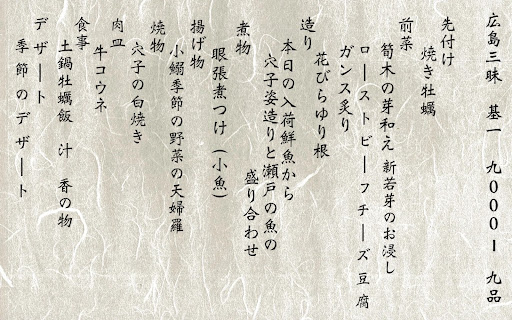 広島三昧 基一 九000ー 九品
先付け
焼き牡蠣
前菜
筍木の芽和え 新若芽のお浸し
ローストビーフチーズ豆腐
ガンス炙り
花びらゆり根
造り
本日の入荷鮮魚から
穴子姿造りと瀬戸の魚の
盛り合わせ
煮物
眼張煮つけ (小魚)
揚げ物
小鰯季節の野菜の天婦羅
焼物
穴子の白焼き
肉皿
牛コウネ
食事
土鍋牡蠣飯 汁 香の物
デザート
季節のデザート